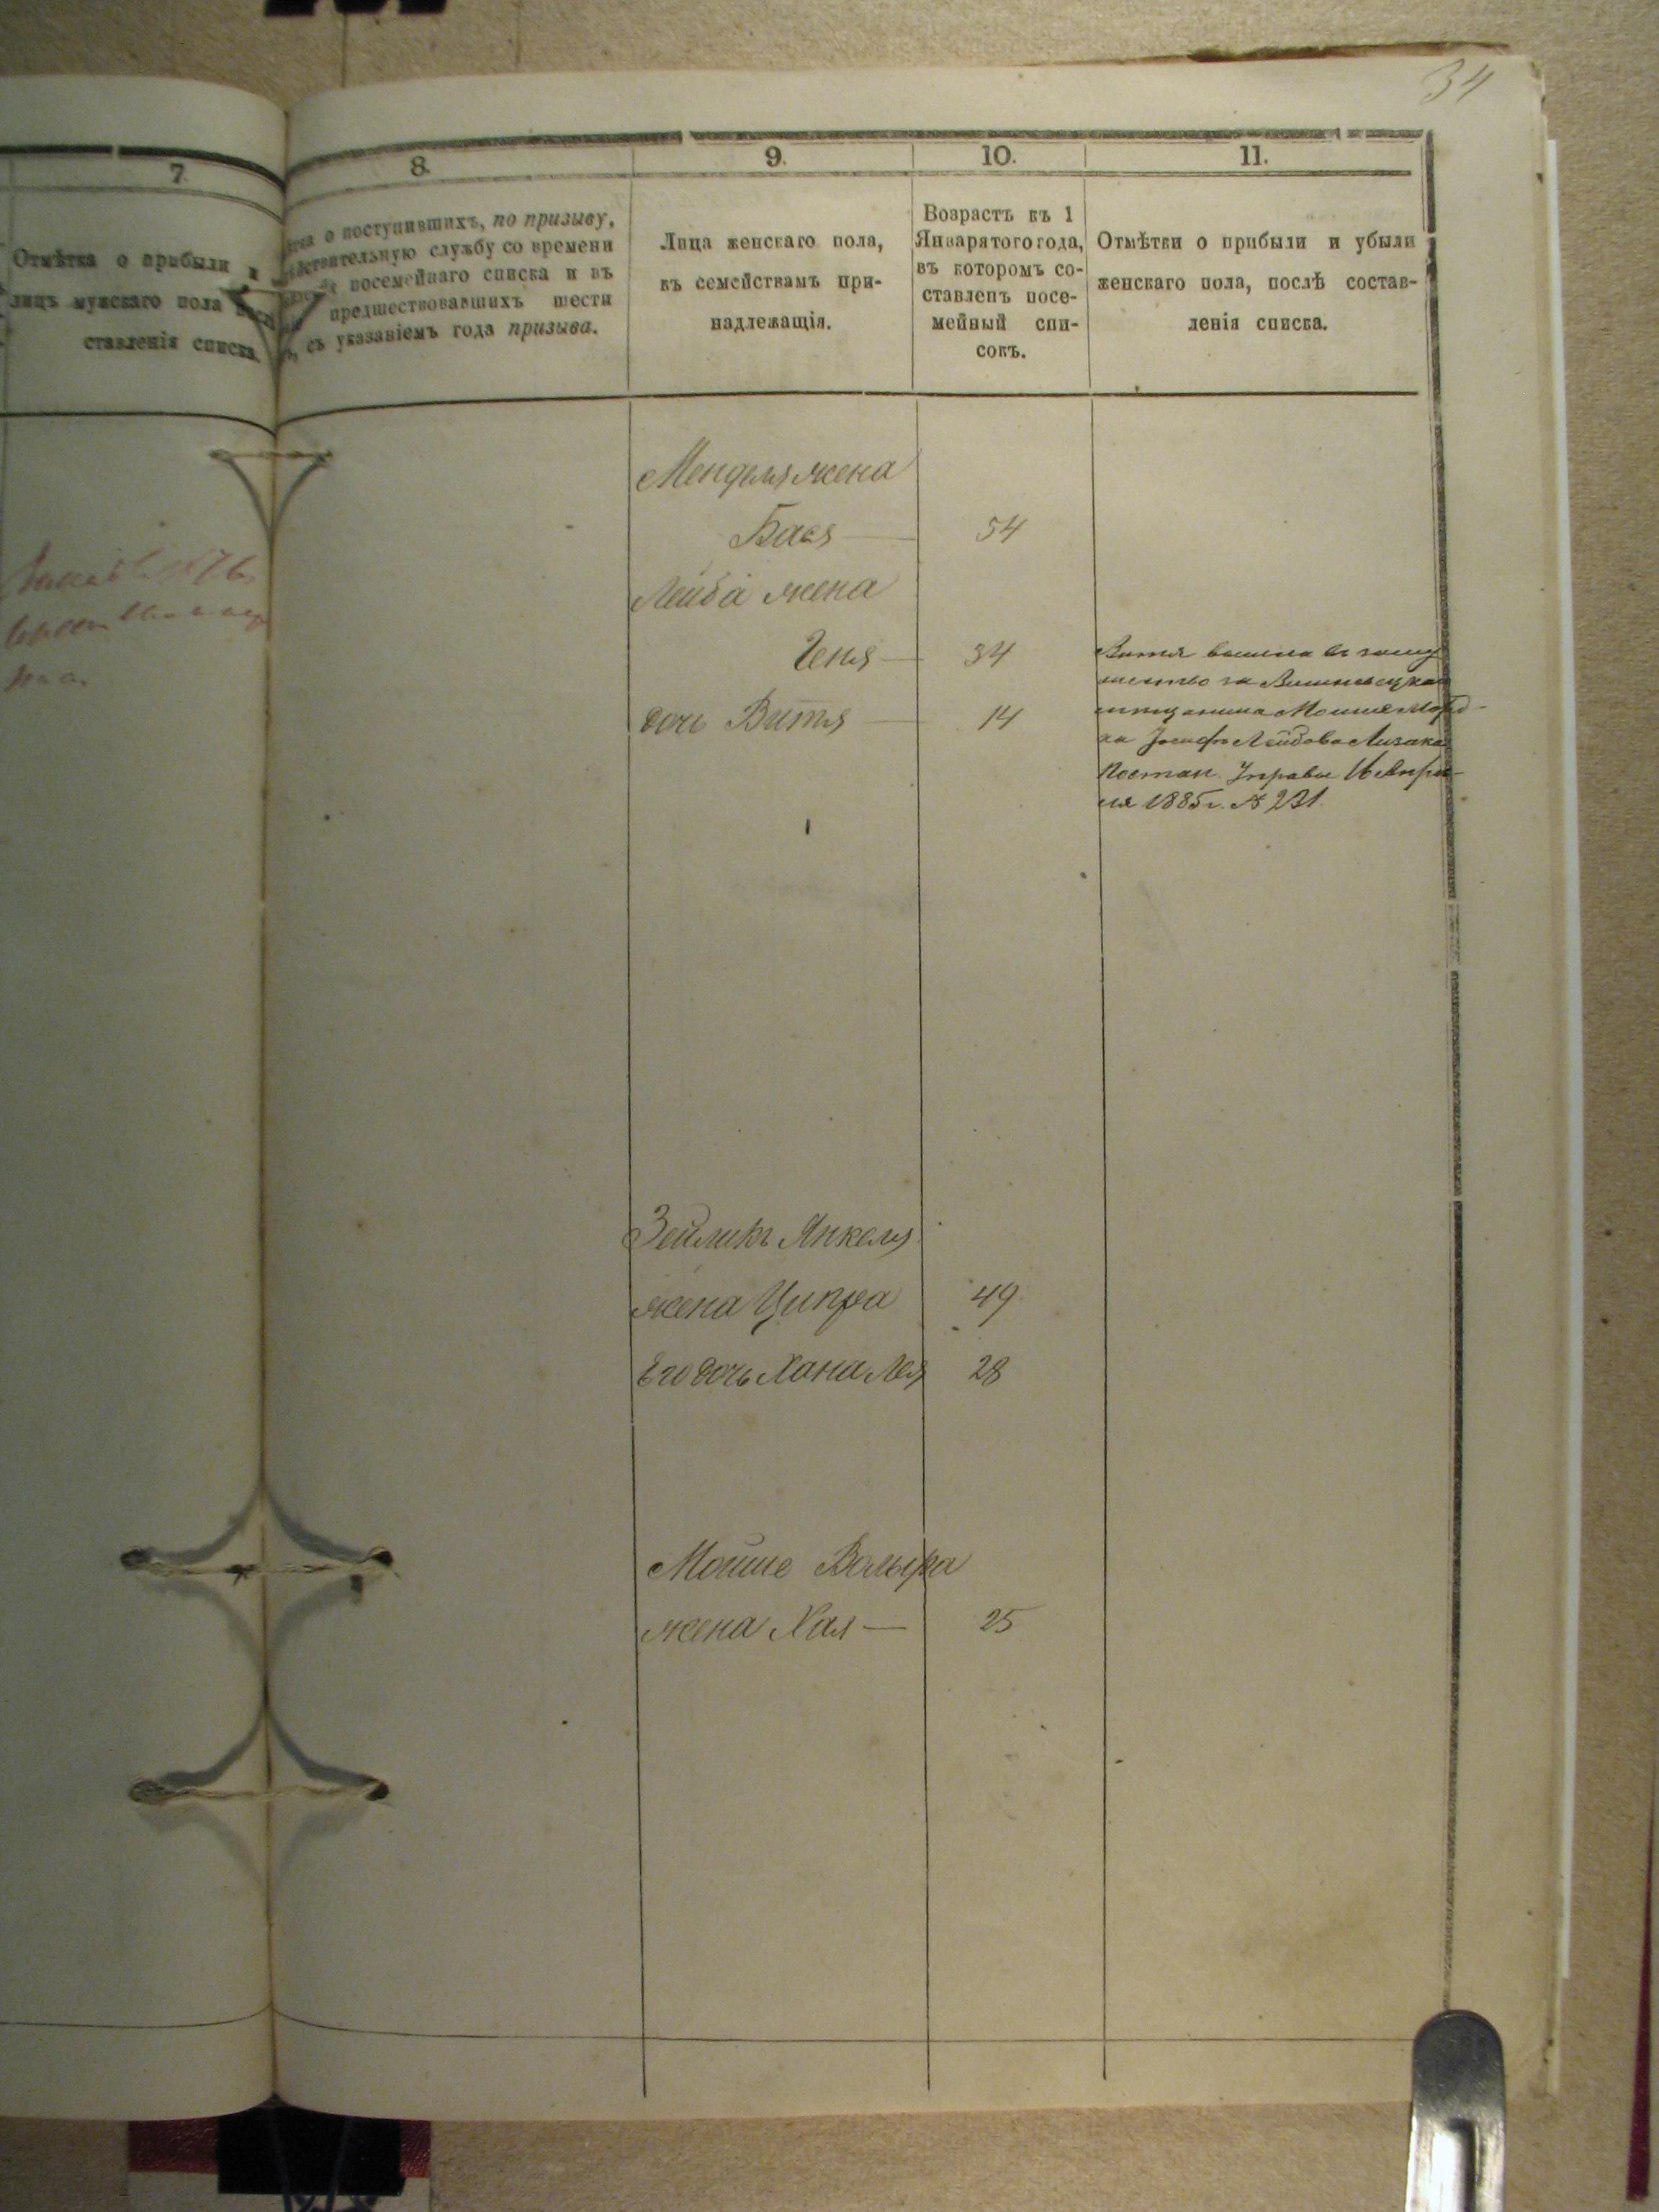 34
7.
8.
9.
10.
11.
Отмѣтка о прибыли и
лицъ мужскаго пола
ставленія списка.
о поступившихъ, по призыву,
дѣйствительную службу со времени
посемейнаго списка и въ
предшествовавшихъ шести
съ указаніемъ года призыва.
Лица женскаго пола,
къ семействамъ при-
надлежащія.
Возрастъ къ 1
Января того года,
въ которомъ со-
ставленъ посе-
мейный спи-
сокъ.
Отмѣтки о прибыли и убыли
женскаго пола, послѣ состав-
ленія списка.
Менделя жена
Бася — 54
Лейба жена
Геня — 34
дочь Витя — 14
Витя вышла въ заму
жество за Вишневецкаго
мѣщанина Мошке Морд-
ка Іосифа Лейбова
Постан. Управы 16 Апрѣ-
ля 1885 г. № 231
Зейликъ Янкеля
жена Ципра 49
Его дочь Хана Лея 28
Мойше Вольфа
жена Хая — 25